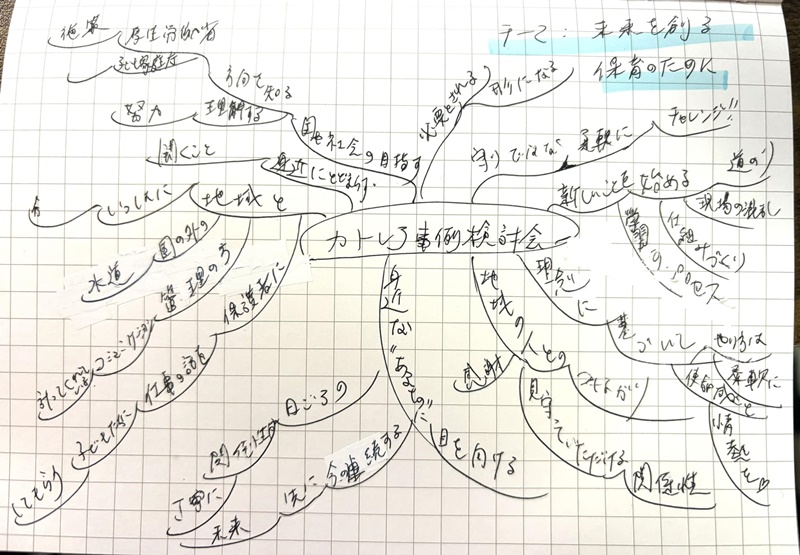 テーマ: 未来を創る
保育のために
カトレア事例検討会
施策
厚生労働省
方向を知る
努力
理解する
国や社会の目指す
聞くこと
身近にとどまらず
必要とされる
形になる
守りではなく
柔軟に
チャレンジ!!
新しいことを始める
道のり
現場の混乱
仕組みづくり
地域と
いっしょに
国の外の
水道
管理の方
コミュニケーション
保護者に
仕事の話を
子どもたちに
してもらう
身近な"あるもの"に
目を向ける
今の
継続する
先に
未来
日ごろの
関係性
丁寧に
地域の人との
感謝
つながり
見守っていただける
関係性
規則に
基づいて
やり方は
柔軟に
使命感と
情熱を♡